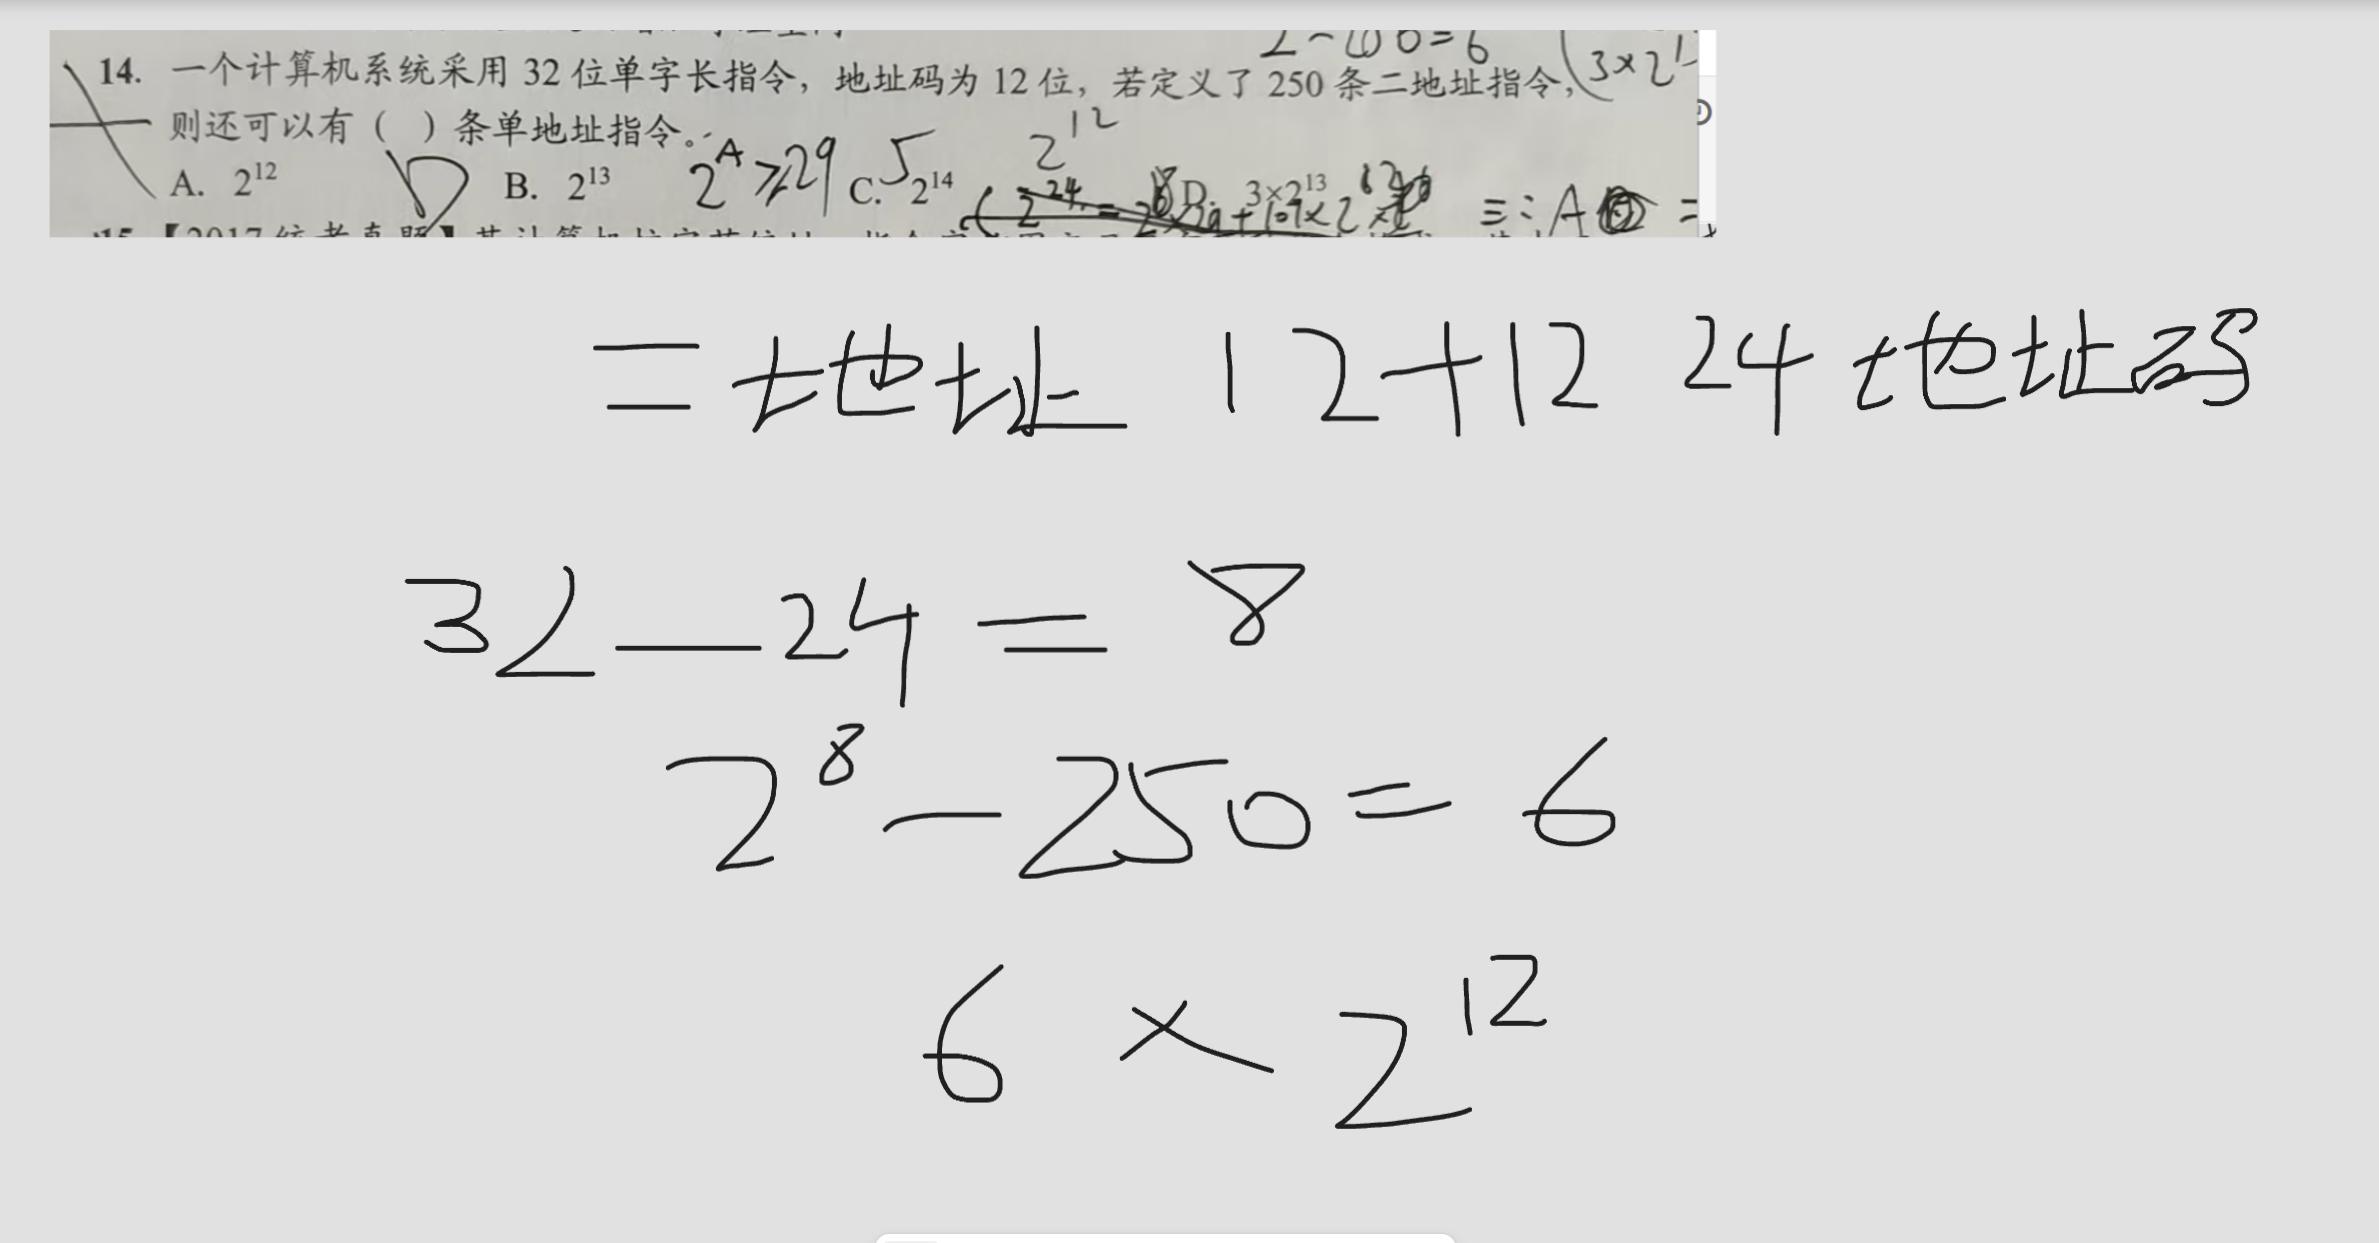 2-250=6 (3×2
14. 一个计算机系统采用 32 位单字长指令，地址码为 12 位，若定义了 250 条二地址指令，
则还可以有（ ）条单地址指令。 2^12
A. 2^12 D B. 2^13 2^A ≥29 5 C. 2^14 D. 3×2^13
二地址 12+12 24 地址码
32-24=8
2^8-250=6
6×2^12